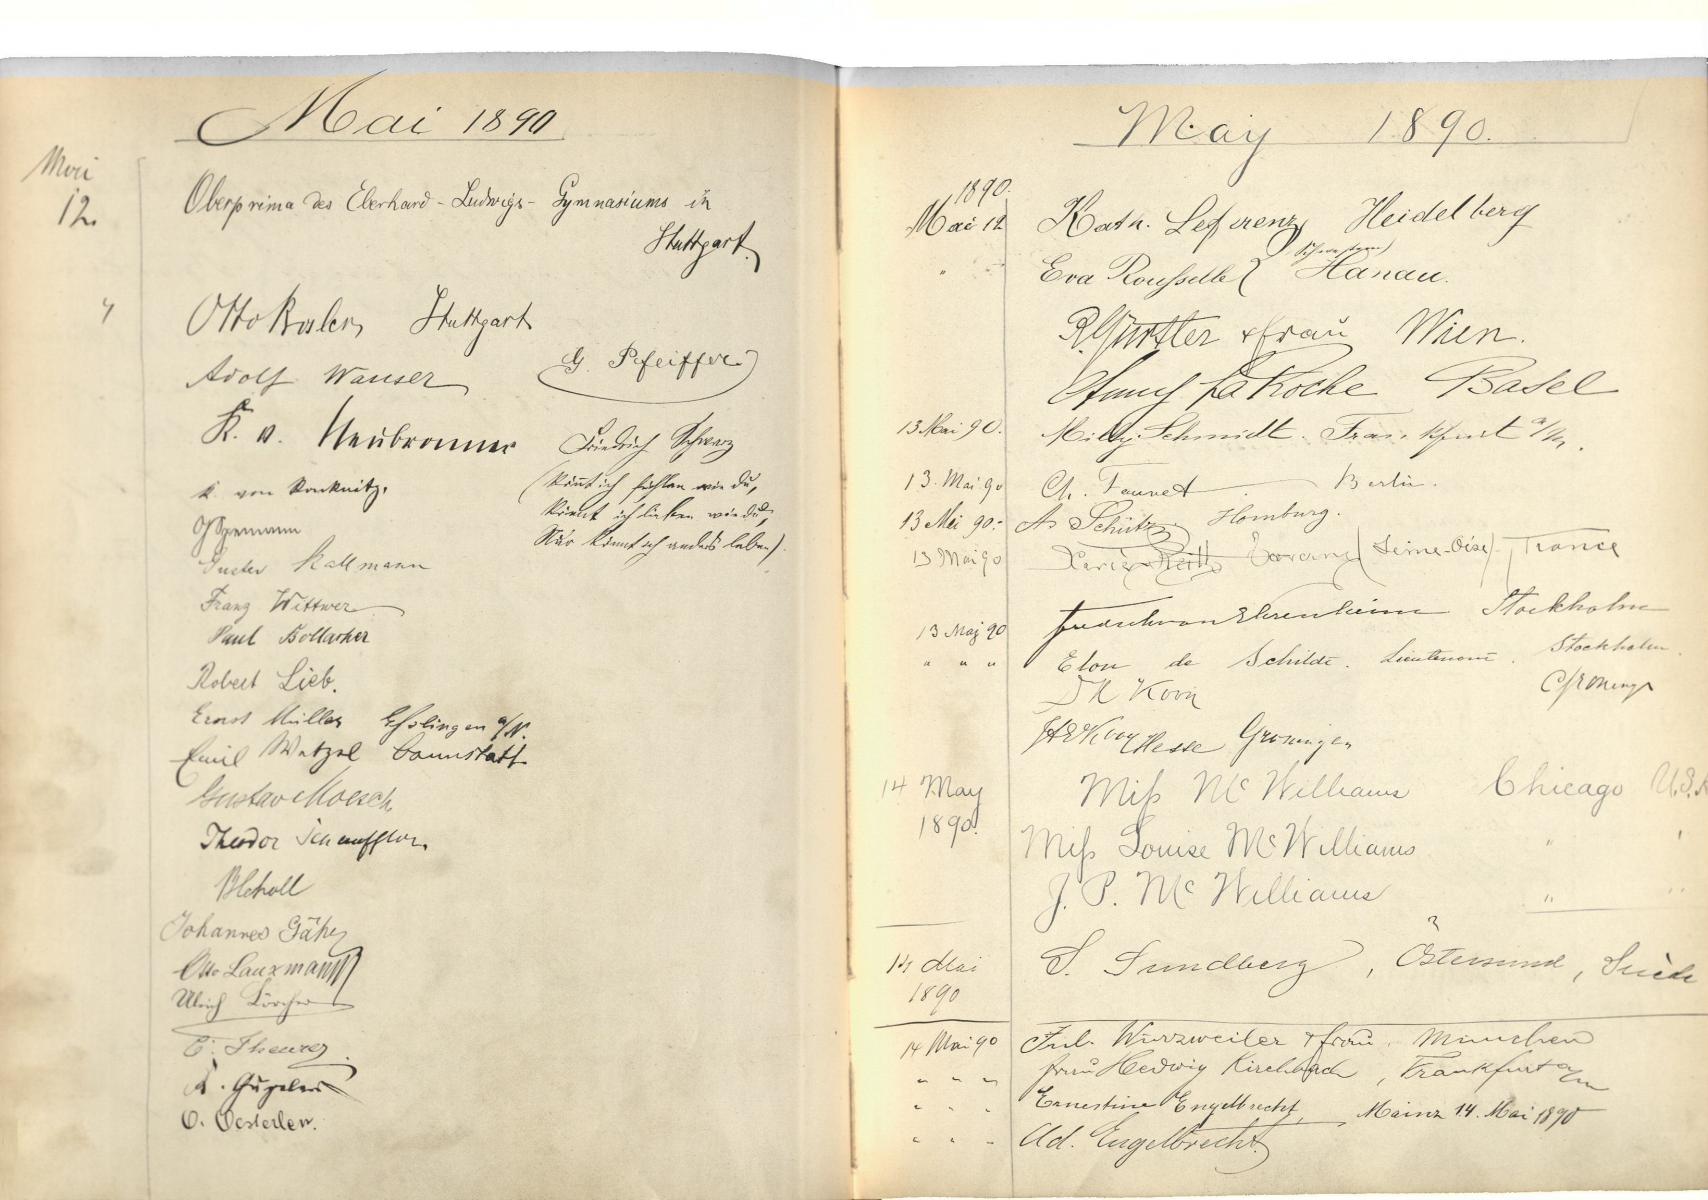 Mai 1890
Mai
12.
Oberprima des Eberhard-Ludwigs-Gymnasiums in
Stuttgart.
Otto Stuttgart
Adolf Wanser
G. Pfeiffer
K. v. Neubronner
Friedrich Schwarz
k. von
(Könnt ich fühlen wie du,
Könnt ich lieben wie du,
Nur könnt ich anders leben).
Spemann
Gustav Kallmann
Franz Wittwer
Paul Bollacher
Robert Lieb.
Ernst Müller Eßlingen a/N.
Emil Wetzel Cannstatt
Gustav Moesch
Theodor Schauffler.
Johannes Gähr
Otto Lauxmann
Ulrich Lörcher
E. Theurer
K. Gugeler
O. Oesterlen.
May 1890.
1890.
Mai 12 Kath. Leferenz Heidelberg
" Eva Rousselle Hanau.
R. Gürtler & Frau Wien.
La Roche Basel
13 Mai 90. Milly Schmidt. Frankfurt a/M.
13. Mai 90 Ch. Berlin.
13 Mai 90. A. Schütz Homburg.
13 Mai 90 (Seine-Oise) France
von Ehrenheim Stockholm
13 Maj 90
" " " de Schildt. Lieutenant. Stockholm.
Koon
Hesse Groningen
14 May Miss McWilliams Chicago U.S.A
1890. Miss Louise McWilliams " "
J. P. McWilliams " "
14 Mai S. Sundberg, Östersund, Suède
1890
14 Mai 90 Jul. Wurzweiler & Frau. München
" " " Frau Hedwig Kirchbach, Frankfurt a/m
" " " Ernestine Engelbrecht, Mainz 14. Mai 1890
" " " Ad. Engelbrecht.